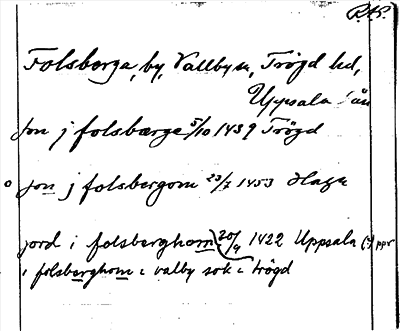 RAP.
Folsberga, by, Vallby sn, Trögd hd,
Uppsala län
Jon j folsbærge 5/10 1439 Trögd
jon j folsbergom 23/7 1453 Haga
jord i folsberghom 20/9 1422 Uppsala (?) ppr
i folsberghom i valby sok i trögd